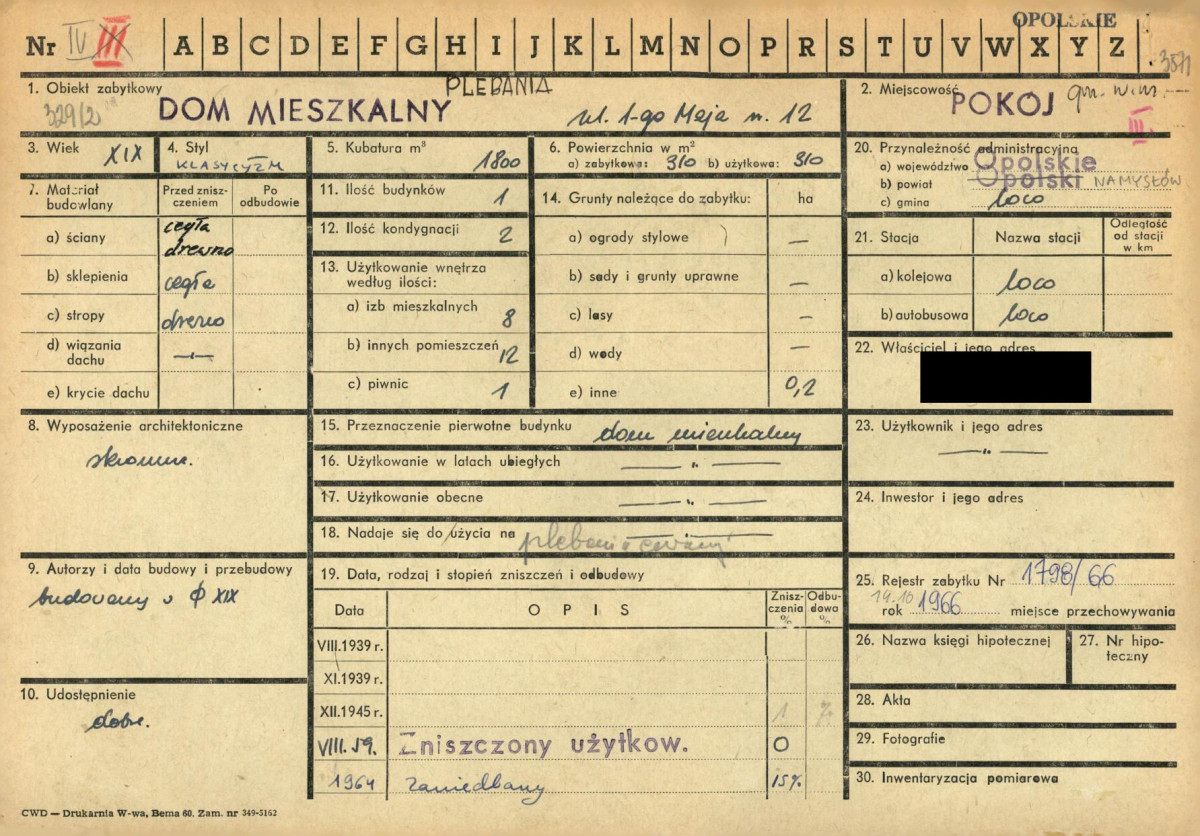 OPOLSKIE
Nr IV III A B C D E F G H I J K L M N O P R S T U V W X Y Z
3571
1. Obiekt zabytkowy PLEBANIA
329/2 DOM MIESZKALNY ul. 1-go Maja n. 12
2. Miejscowość POKÓJ
III.
3. Wiek XIX
4. Styl KLASYCYZM
5. Kubatura m³ 1800
6. Powierzchnia w m²
a) zabytkowa: 310 b) użytkowa: 310
20. Przynależność administracyjna
a) województwo Opolskie
b) powiat Opolski NAMYSŁÓW
c) gmina loco
7. Materiał budowlany
Przed zniszczeniem
Po odbudowie
a) ściany cegła drewno
b) sklepienia cegła
c) stropy drewno
d) wiązania dachu —"—
e) krycie dachu
11. Ilość budynków 1
12. Ilość kondygnacji 2
13. Użytkowanie wnętrza
według ilości:
a) izb mieszkalnych 8
b) innych pomieszczeń 12
c) piwnic 1
14. Grunty należące do zabytku: ha
a) ogrody stylowe —
b) sady i grunty uprawne —
c) lasy —
d) wody —
e) inne 0,2
21. Stacja Nazwa stacji Odległość od stacji w km
a) kolejowa loco
b) autobusowa loco
22. Właściciel i jego adres
8. Wyposażenie architektoniczne
skromne.
15. Przeznaczenie pierwotne budynku dom mieszkalny
16. Użytkowanie w latach ubiegłych —"—
17. Użytkowanie obecne —"—
18. Nadaje się do użycia na plebania
23. Użytkownik i jego adres
—"—
24. Inwestor i jego adres
9. Autorzy i data budowy i przebudowy
budowany w XIX
10. Udostępnienie
dobre.
19. Data, rodzaj i stopień zniszczeń i odbudowy
Data OPIS Zniszczenia % Odbudowa %
VIII.1939 r.
XI.1939 r.
XII.1945 r. 1 %
VIII.59. Zniszczony użytkow. 0
1964 zaniedbany 15%
25. Rejestr zabytku Nr 1798/66
19.10
rok 1966 miejsce przechowywania
26. Nazwa księgi hipotecznej
27. Nr hipoteczny
28. Akta
29. Fotografie
30. Inwentaryzacja pomiarowa
CWD — Drukarnia W-wa, Bema 60. Zam. nr 349-5162